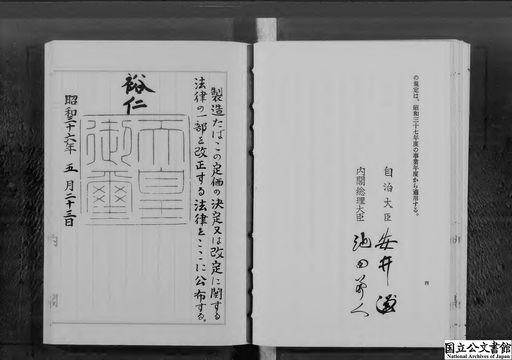 の規定は、昭和三十七年度の事業年度から適用する。
自治大臣 安井謙
内閣総理大臣 池田勇人
四
製造たばこの定価の決定又は改定に関する
法律の一部を改正する法律をここに公布する。
裕仁
天皇
御璽
昭和三十六年五月二十三日
国立公文書館
National Archives of Japan